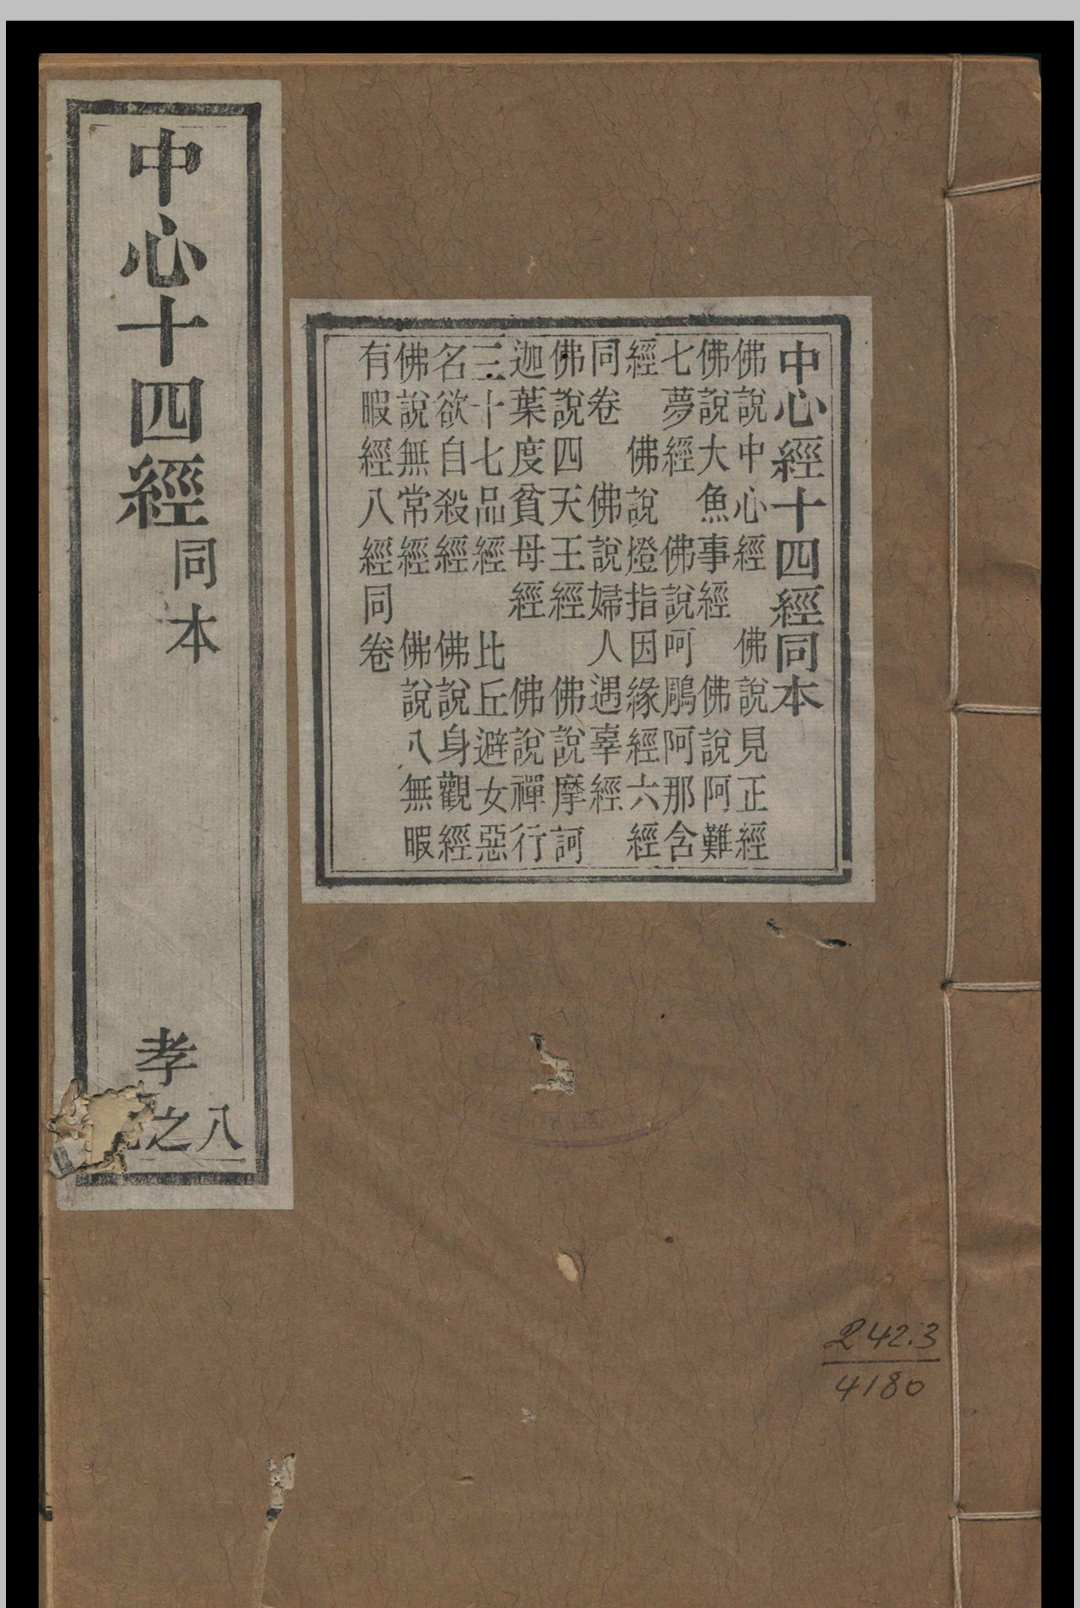 中心經十四經同本
佛說中心經　佛說見正經
佛說大魚事經　佛說阿難
七夢經　佛說呵鵰阿那含
經　佛說燈指因緣經六經
同卷　佛說婦人遇辜經
佛說四天王經　佛說摩訶
迦葉度貧母經　佛說禪行
三十七品經　比丘避女惡
名欲自殺經　佛說身觀經
佛說無常經　佛說八無暇
有暇經八經同卷
中心十四經同本
孝
八之
242.3
4180